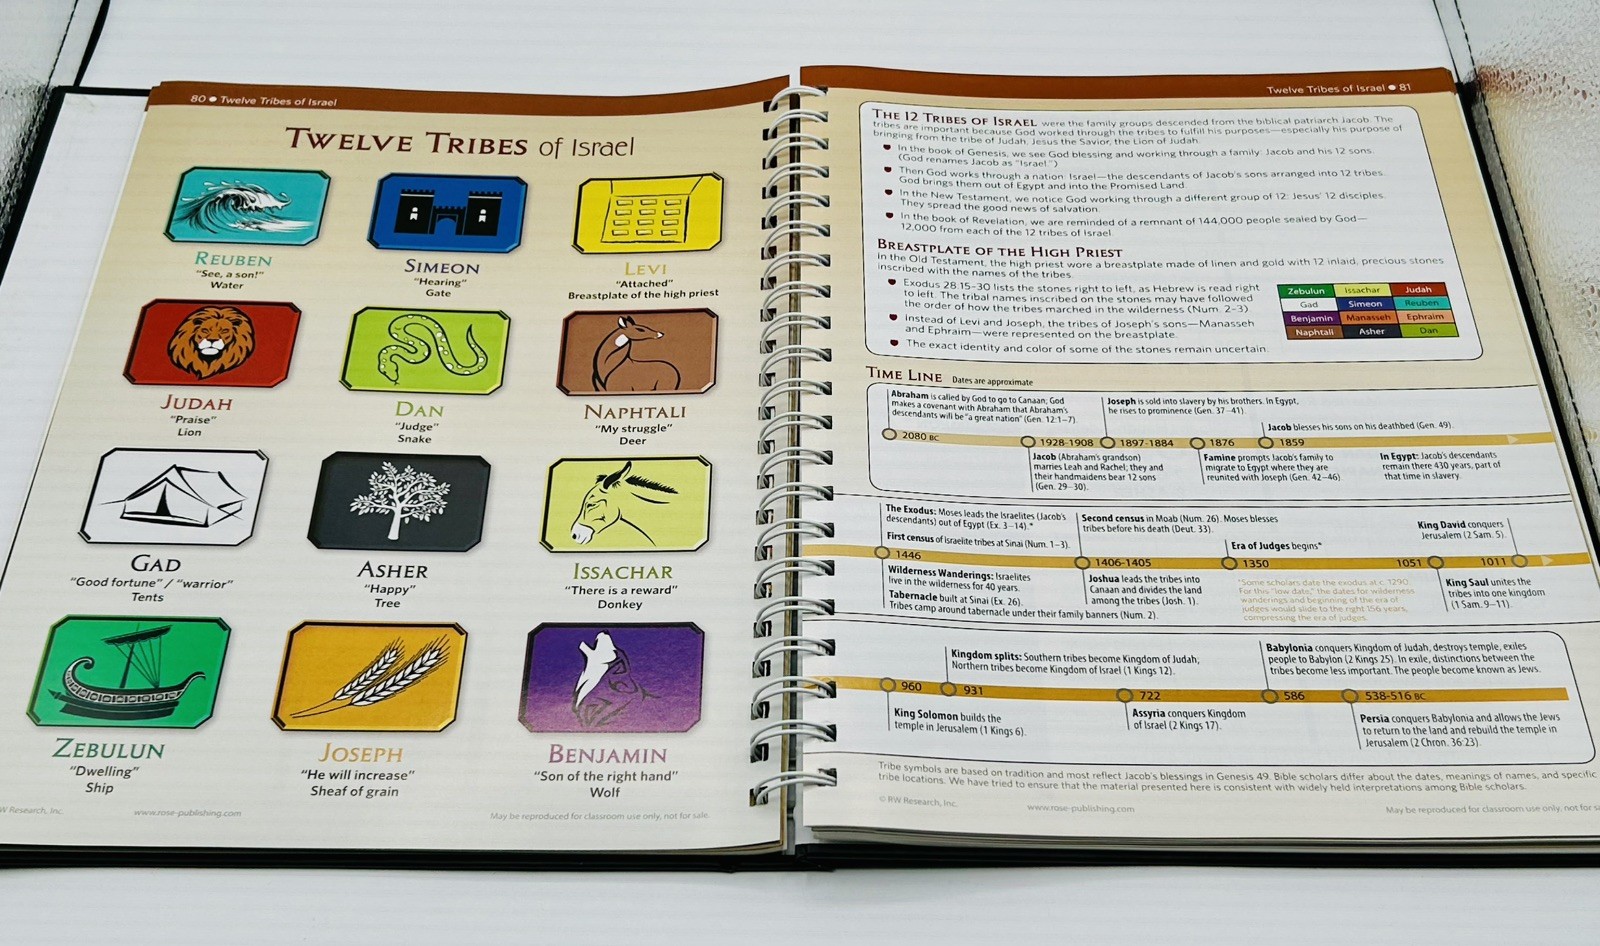 80 ● Twelve Tribes of Israel
TWELVE TRIBES of Israel
REUBEN
"See, a son!"
Water
SIMEON
"Hearing"
Gate
LEVI
"Attached"
Breastplate of the high priest
JUDAH
"Praise"
Lion
DAN
"Judge"
Snake
NAPHTALI
"My struggle"
Deer
GAD
"Good fortune" / "warrior"
Tents
ASHER
"Happy"
Tree
ISSACHAR
"There is a reward"
Donkey
ZEBULUN
"Dwelling"
Ship
JOSEPH
"He will increase"
Sheaf of grain
BENJAMIN
"Son of the right hand"
Wolf
RW Research, Inc.
www.rose-publishing.com
May be reproduced for classroom use only, not for sale.
Twelve Tribes of Israel ● 81
THE 12 TRIBES OF ISRAEL were the family groups descended from the biblical patriarch Jacob. The
tribes are important because God worked through the tribes to fulfill his purposes—especially his purpose of
bringing from the tribe of Judah, Jesus the Savior, the Lion of Judah.
In the book of Genesis, we see God blessing and working through a family: Jacob and his 12 sons.
(God renames Jacob as "Israel.")
Then God works through a nation: Israel—the descendants of Jacob's sons arranged into 12 tribes.
God brings them out of Egypt and into the Promised Land.
In the New Testament, we notice God working through a different group of 12: Jesus' 12 disciples.
They spread the good news of salvation.
In the book of Revelation, we are reminded of a remnant of 144,000 people sealed by God—
12,000 from each of the 12 tribes of Israel.
BREASTPLATE OF THE HIGH PRIEST
In the Old Testament, the high priest wore a breastplate made of linen and gold with 12 inlaid, precious stones
inscribed with the names of the tribes.
Exodus 28:15-30 lists the stones right to left, as Hebrew is read right
to left. The tribal names inscribed on the stones may have followed
the order of how the tribes marched in the wilderness (Num. 2-3).
Instead of Levi and Joseph, the tribes of Joseph's sons—Manasseh
and Ephraim—were represented on the breastplate.
The exact identity and color of some of the stones remain uncertain.
Zebulun Issachar Judah
Gad Simeon Reuben
Benjamin Manasseh Ephraim
Naphtali Asher Dan
TIME LINE Dates are approximate
Abraham is called by God to go to Canaan; God
makes a covenant with Abraham that Abraham's
descendants will be "a great nation" (Gen. 12:1-7).
Joseph is sold into slavery by his brothers. In Egypt,
he rises to prominence (Gen. 37-41).
Jacob blesses his sons on his deathbed (Gen. 49).
2080 BC
1928-1908
1897-1884
1876
1859
Jacob (Abraham's grandson)
marries Leah and Rachel; they and
their handmaidens bear 12 sons
(Gen. 29-30).
Famine prompts Jacob's family to
migrate to Egypt where they are
reunited with Joseph (Gen. 42-46)
In Egypt: Jacob's descendants
remain there 430 years, part of
that time in slavery.
The Exodus: Moses leads the Israelites (Jacob's
descendants) out of Egypt (Ex. 3-14).*
First census of Israelite tribes at Sinai (Num. 1-3).
Second census in Moab (Num. 26). Moses blesses
tribes before his death (Deut. 33).
Era of Judges begins*
King David conquers
Jerusalem (2 Sam. 5).
1446
1406-1405
1350
1051
1011
Wilderness Wanderings: Israelites
live in the wilderness for 40 years.
Tabernacle built at Sinai (Ex. 26).
Tribes camp around tabernacle under their family banners (Num. 2).
Joshua leads the tribes into
Canaan and divides the land
among the tribes (Josh. 1).
*Some scholars date the exodus at c. 1290.
For this "low date," the dates for wilderness
wanderings and beginning of the era of
judges would slide to the right 156 years,
compressing the era of judges.
King Saul unites the
tribes into one kingdom
(1 Sam. 9-11).
Kingdom splits: Southern tribes become Kingdom of Judah;
Northern tribes become Kingdom of Israel (1 Kings 12).
Babylonia conquers Kingdom of Judah, destroys temple, exiles
people to Babylon (2 Kings 25). In exile, distinctions between the
tribes become less important. The people become known as Jews.
960
931
722
586
538-516 BC
King Solomon builds the
temple in Jerusalem (1 Kings 6).
Assyria conquers Kingdom
of Israel (2 Kings 17).
Persia conquers Babylonia and allows the Jews
to return to the land and rebuild the temple in
Jerusalem (2 Chron. 36:23).
Tribe symbols are based on tradition and most reflect Jacob's blessings in Genesis 49. Bible scholars differ about the dates, meanings of names, and specific
tribe locations. We have tried to ensure that the material presented here is consistent with widely held interpretations among Bible scholars.
© RW Research, Inc.
www.rose-publishing.com
May be reproduced for classroom use only, not for